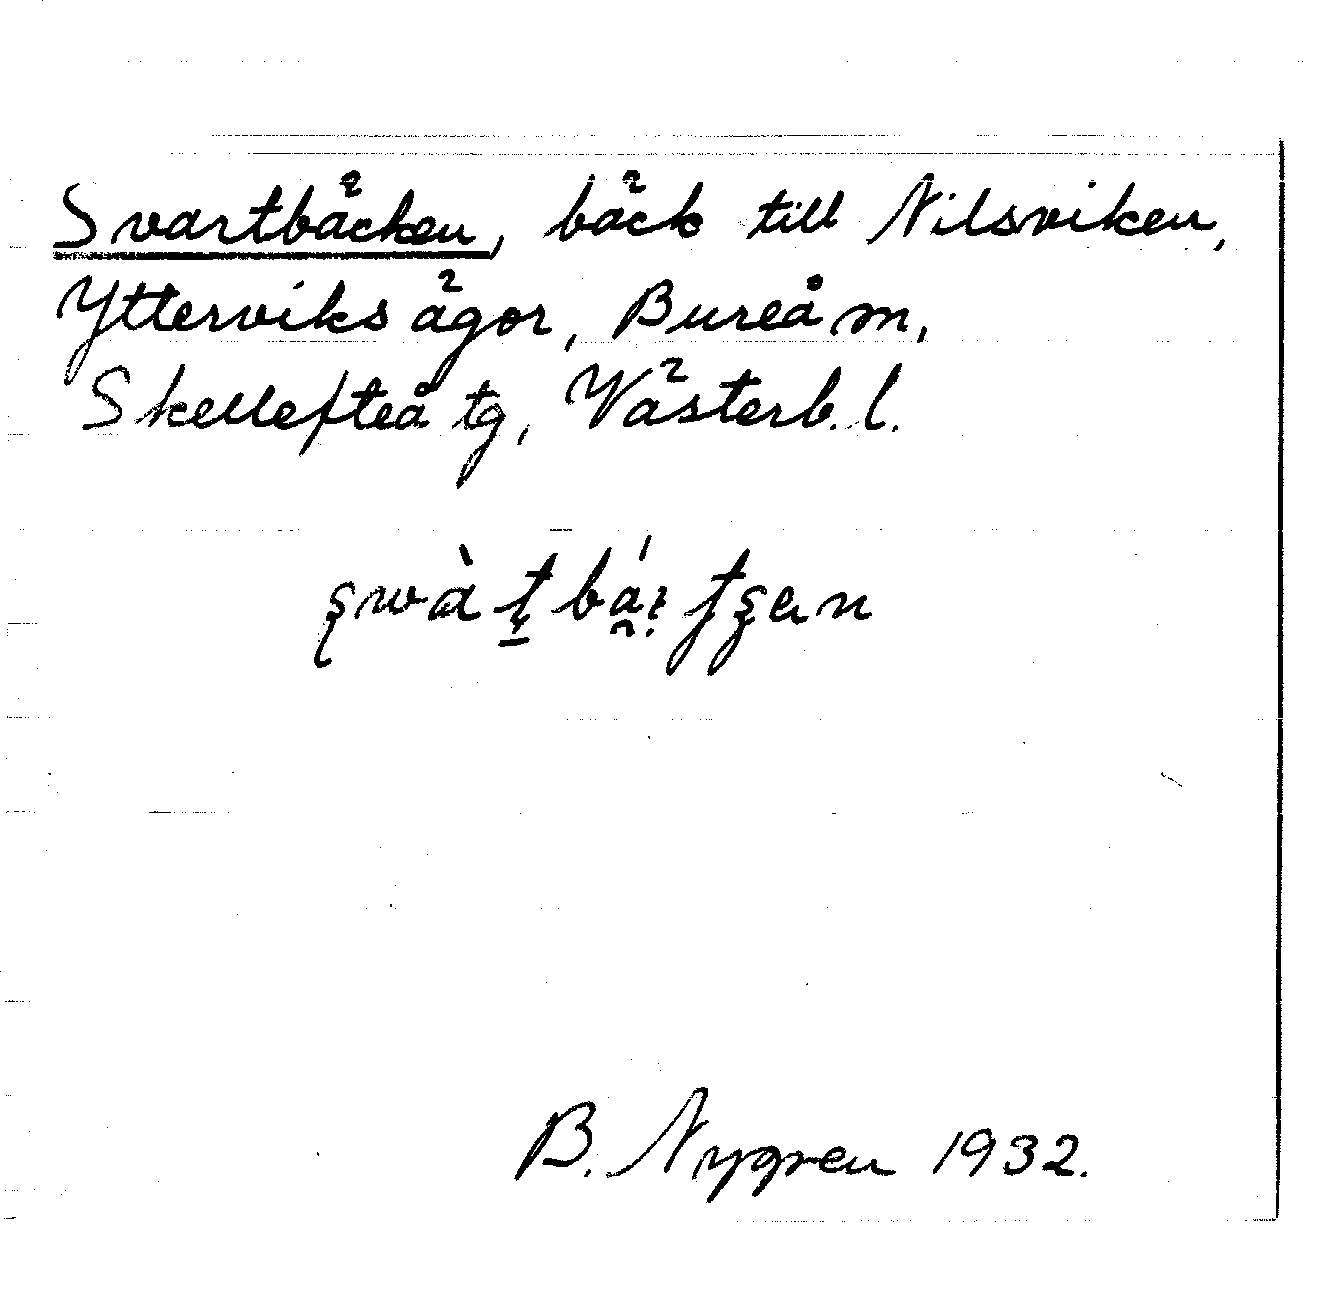 Svartbäcken, bäck till Nilsviken,
Ytterviks ägor, Bureå m,
Skellefteå tg, Västerb. l.
B. Nygren 1932.